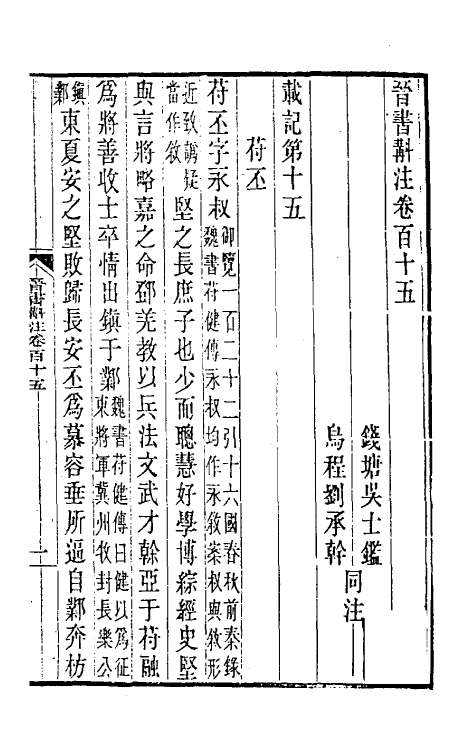 晉書斠注卷百十五
錢塘吳士鑑
烏程劉承幹
同注
載記第十五
苻丕
苻丕字永叔御覽一百二十二引十六國春秋前秦錄
魏書苻健傳永叔均作永敘案叔與敘形
近致譌疑
當作敘堅之長庶子也少而聰慧好學博綜經史堅
與言將略嘉之命鄧羌教以兵法文武才幹亞于苻融
為將善收士卒情出鎮于鄴魏書苻健傳曰健以為征
東將軍冀州牧封長樂公
鎮
鄴東夏安之堅敗歸長安丕為慕容垂所逼自鄴奔枋
晉書斠注卷百十五
一